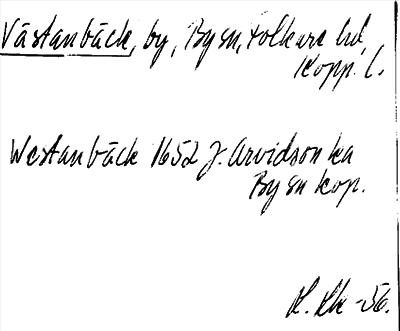 Västanbäck, by, By sn, Folkare hd,
Kopp. l.
Westanbäck 1652 J. Arvidson ka
By sn kop.
-56.